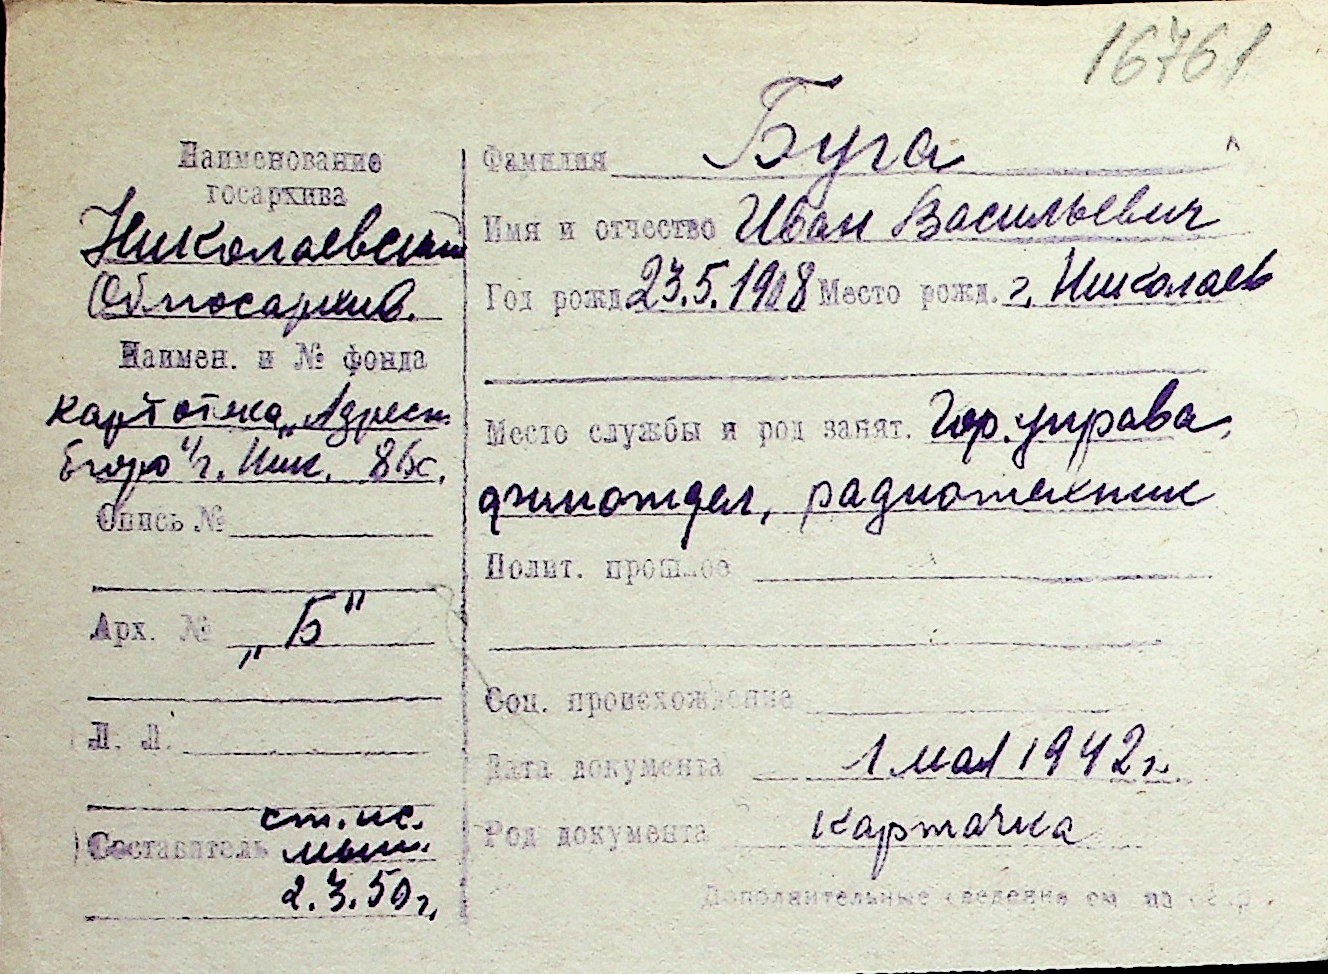 16761
Наименование
госархива
Николаевский
Облгосархив.
Наимен. и № фонда
картотека „Адресн.
бюро" г. Ник.
Опись №
Арх. № „Б"
Л. Л.
Составитель ст. ис.
2.3.50 г.
Фамилия Буга
Имя и отчество Иван Васильевич
Год рожд. 23.5.1908 Место рожд. г. Николаев
Место службы и род занят. Гор. управа,
финотдел, радиотехник
Полит. прошлое
Соц. происхождение
Дата документа 1 мая 1942 г.
Род документа карточка
Дополнительные сведения см на обор.